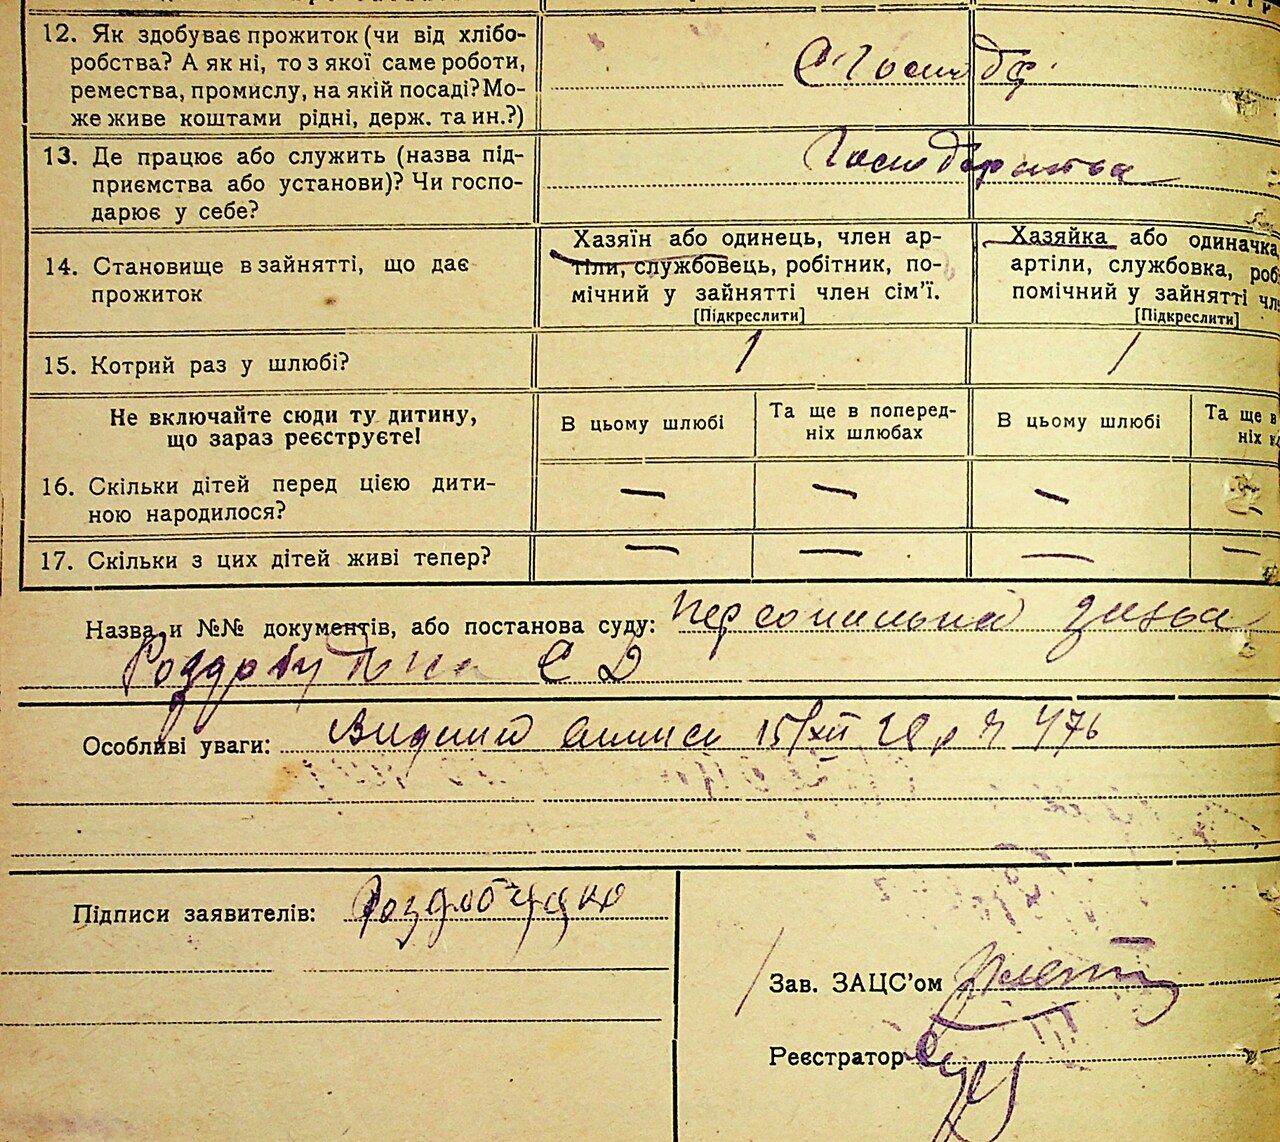 12. Як здобуває прожиток (чи від хлібо-
робства? А як ні, то з якої саме роботи,
ремества, промислу, на якій посаді? Мо-
же живе коштами рідні, держ. та ин.?)
С. Господ.
13. Де працює або служить (назва під-
приємства або установи)? Чи госпо-
дарює у себе?
Господарства
14. Становище в зайнятті, що дає
прожиток
Хазяїн або одинець, член ар-
тіли, службовець, робітник, по-
мічний у зайнятті член сім'ї.
[Підкреслити]
Хазяйка або одиначка,
артіли, службовка, роб
помічний у зайнятті чл
[Підкреслити]
15. Котрий раз у шлюбі?
1
1
Не включайте сюди ту дитину,
що зараз реєструєте!
В цьому шлюбі
Та ще в поперед-
ніх шлюбах
В цьому шлюбі
Та ще в
ніх
16. Скільки дітей перед цією дити-
ною народилося?
— — — —
17. Скільки з цих дітей живі тепер?
— — — —
Назва и №№ документів, або постанова суду: персональна заява
С Д
Особливі уваги: 15/XII 28 р № 476
Підписи заявителів:
Зав. ЗАЦС'ом
Реєстратор